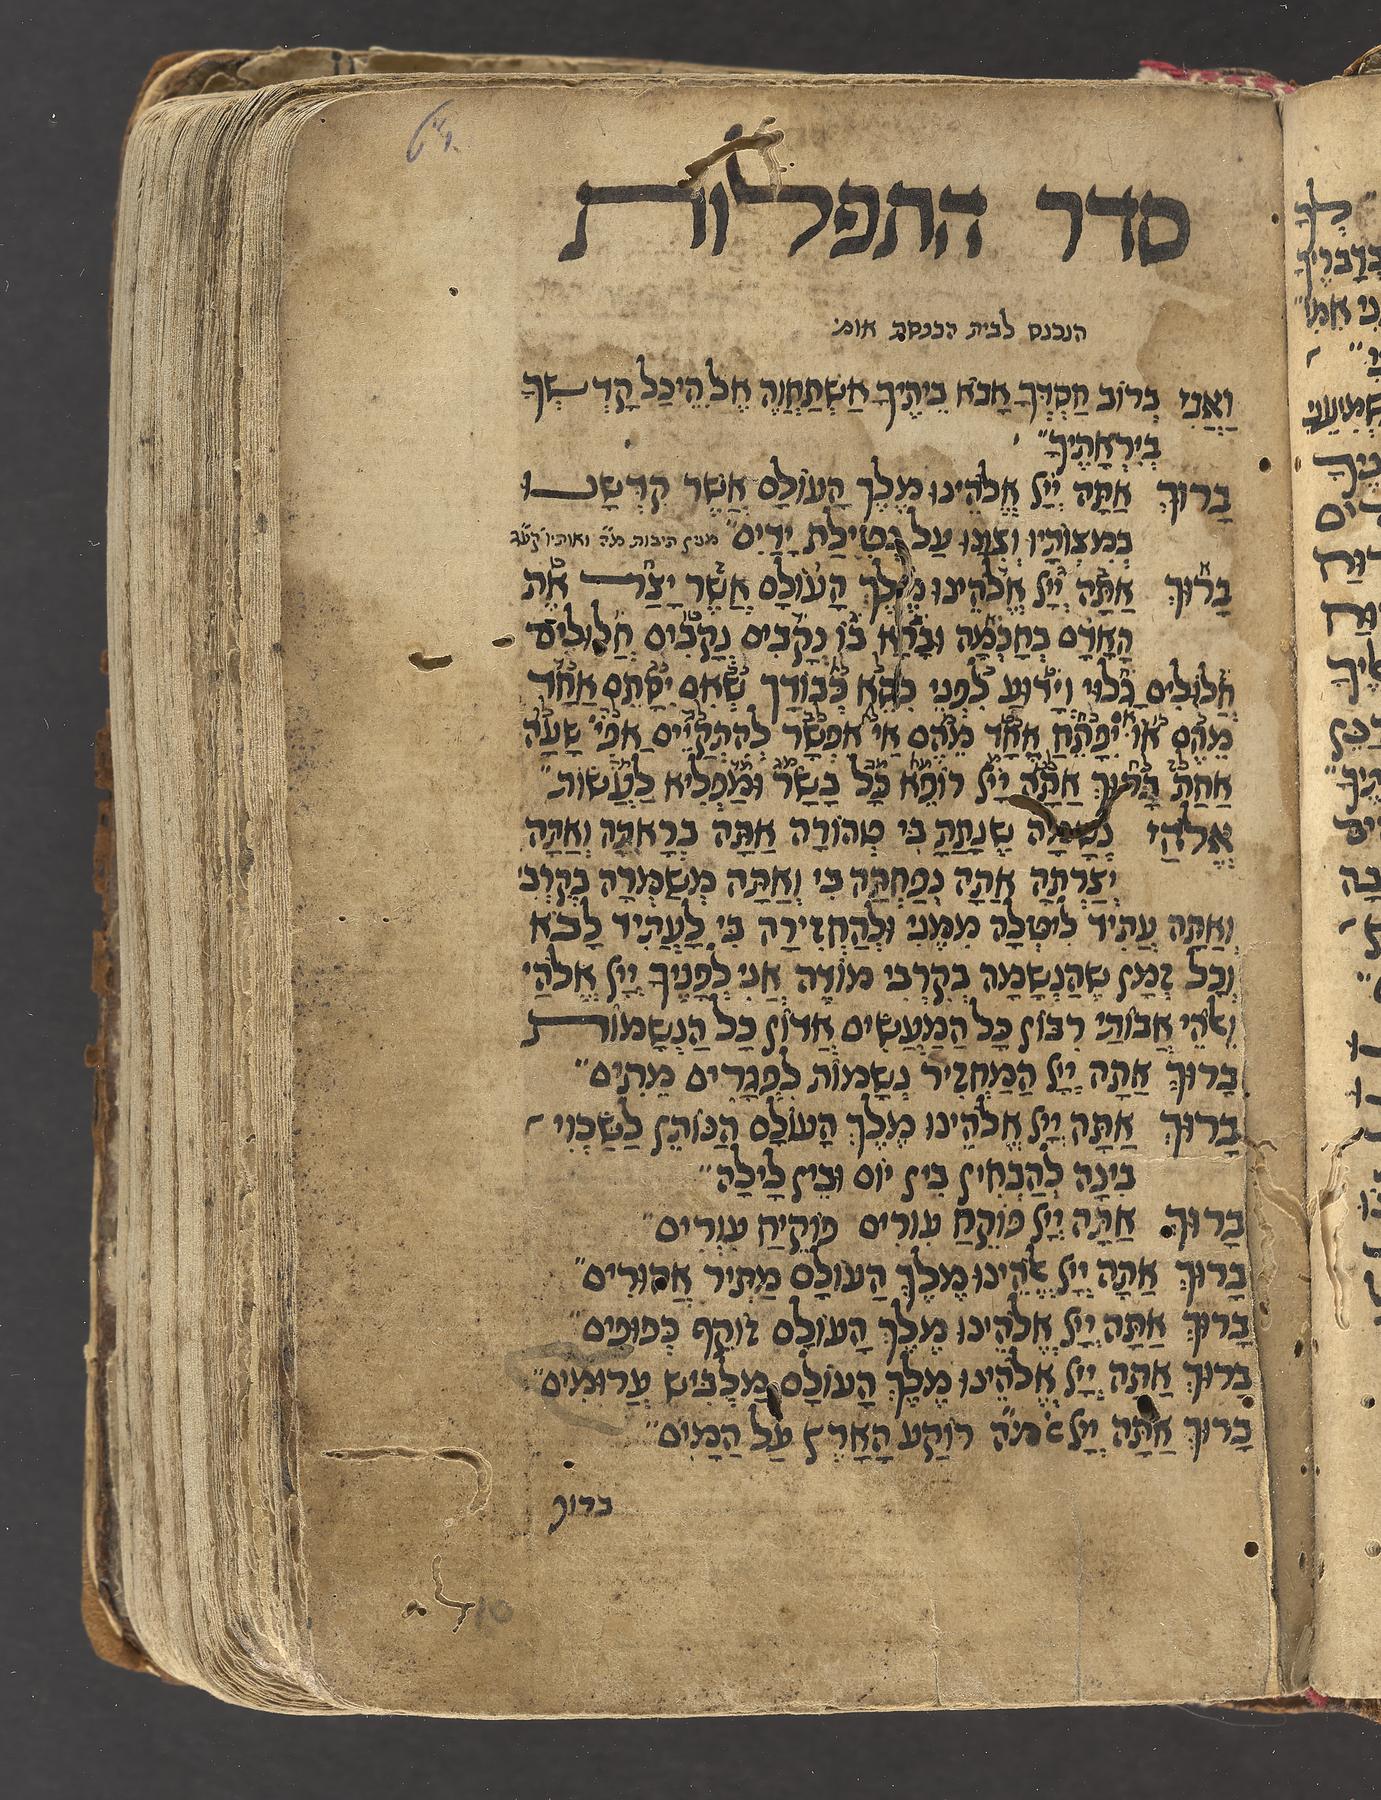 סדר התפלות
הנכנס לבית הכנסת אומ'
וַאֲנִי בְּרוֹב חַסְדְּךָ אָבֹא בֵיתֶיךָ אֶשְׁתַּחֲוֶה אֶל הֵיכַל קָדְשְׁךָ
בְּיִרְאָתֶיךָ
בָּרוּךְ אַתָּה יְיָ אֱלֹהֵינוּ מֶלֶךְ הָעוֹלָם אֲשֶׁר קִדְּשָׁנוּ
בְּמִצְוֹתָיו וְצִוָּנוּ עַל נְטִילַת יָדַיִם מנין תיבות מ"ה ואותיו' קע"ג
בָּרוּךְ אַתָּה יְיָ אֱלֹהֵינוּ מֶלֶךְ הָעוֹלָם אֲשֶׁר יָצַר אֶת
הָאָדָם בְּחָכְמָה וּבָרָא בוֹ נְקָבִים נְקָבִים חֲלוּלִים
חֲלוּלִים גָּלוּי וְיָדוּעַ לִפְנֵי כִסֵּא כְבוֹדָךְ שֶׁאִם יִסָּתֵם אֶחָד
מֵהֶם אוֹ אִם יִפָּתֵחַ אֶחָד מֵהֶם אִי אֶפְשָׁר לְהִתְקַיֵּים אֲפִי' שָׁעָה
אַחַת בָּרוּךְ אַתָּה יְיָ רוֹפֵא כָל בָּשָׂר וּמַפְלִיא לַעֲשׂוֹת
אֱלֹהַי נְשָׁמָה שֶׁנָּתַתָּ בִּי טְהוֹרָה אַתָּה בְרָאתָהּ וְאַתָּה
יְצַרְתָּהּ אַתָּה נְפַחְתָּהּ בִּי וְאַתָּה מְשַׁמְּרָהּ בְּקִרְבִּי
וְאַתָּה עָתִיד לִיטְּלָהּ מִמֶּנִּי וּלְהַחֲזִירָהּ בִּי לֶעָתִיד לָבֹא
וְכָל זְמַן שֶׁהַנְּשָׁמָה בְּקִרְבִּי מוֹדֶה אֲנִי לְפָנֶיךָ יְיָ אֱלֹהַי
וֵאלֹהֵי אֲבוֹתַי רִבּוֹן כָּל הַמַּעֲשִׂים אֲדוֹן כָּל הַנְּשָׁמוֹת
בָּרוּךְ אַתָּה יְיָ הַמַּחֲזִיר נְשָׁמוֹת לִפְגָרִים מֵתִים
בָּרוּךְ אַתָּה יְיָ אֱלֹהֵינוּ מֶלֶךְ הָעוֹלָם הַנּוֹתֵן לַשֶּׂכְוִי
בִּינָה לְהַבְחִין בֵּין יוֹם וּבֵין לָיְלָה
בָּרוּךְ אַתָּה יְיָ פּוֹקֵחַ עִוְרִים פּוֹקֵיחַ עִוְרִים
בָּרוּךְ אַתָּה יְיָ אֱלֹהֵינוּ מֶלֶךְ הָעוֹלָם מַתִּיר אֲסוּרִים
בָּרוּךְ אַתָּה יְיָ אֱלֹהֵינוּ מֶלֶךְ הָעוֹלָם זוֹקֵף כְּפוּפִים
בָּרוּךְ אַתָּה יְיָ אֱלֹהֵינוּ מֶלֶךְ הָעוֹלָם מַלְבִּישׁ עֲרוּמִים
בָּרוּךְ אַתָּה יְיָ רוֹקַע הָאָרֶץ עַל הַמָּיִם
ברוך